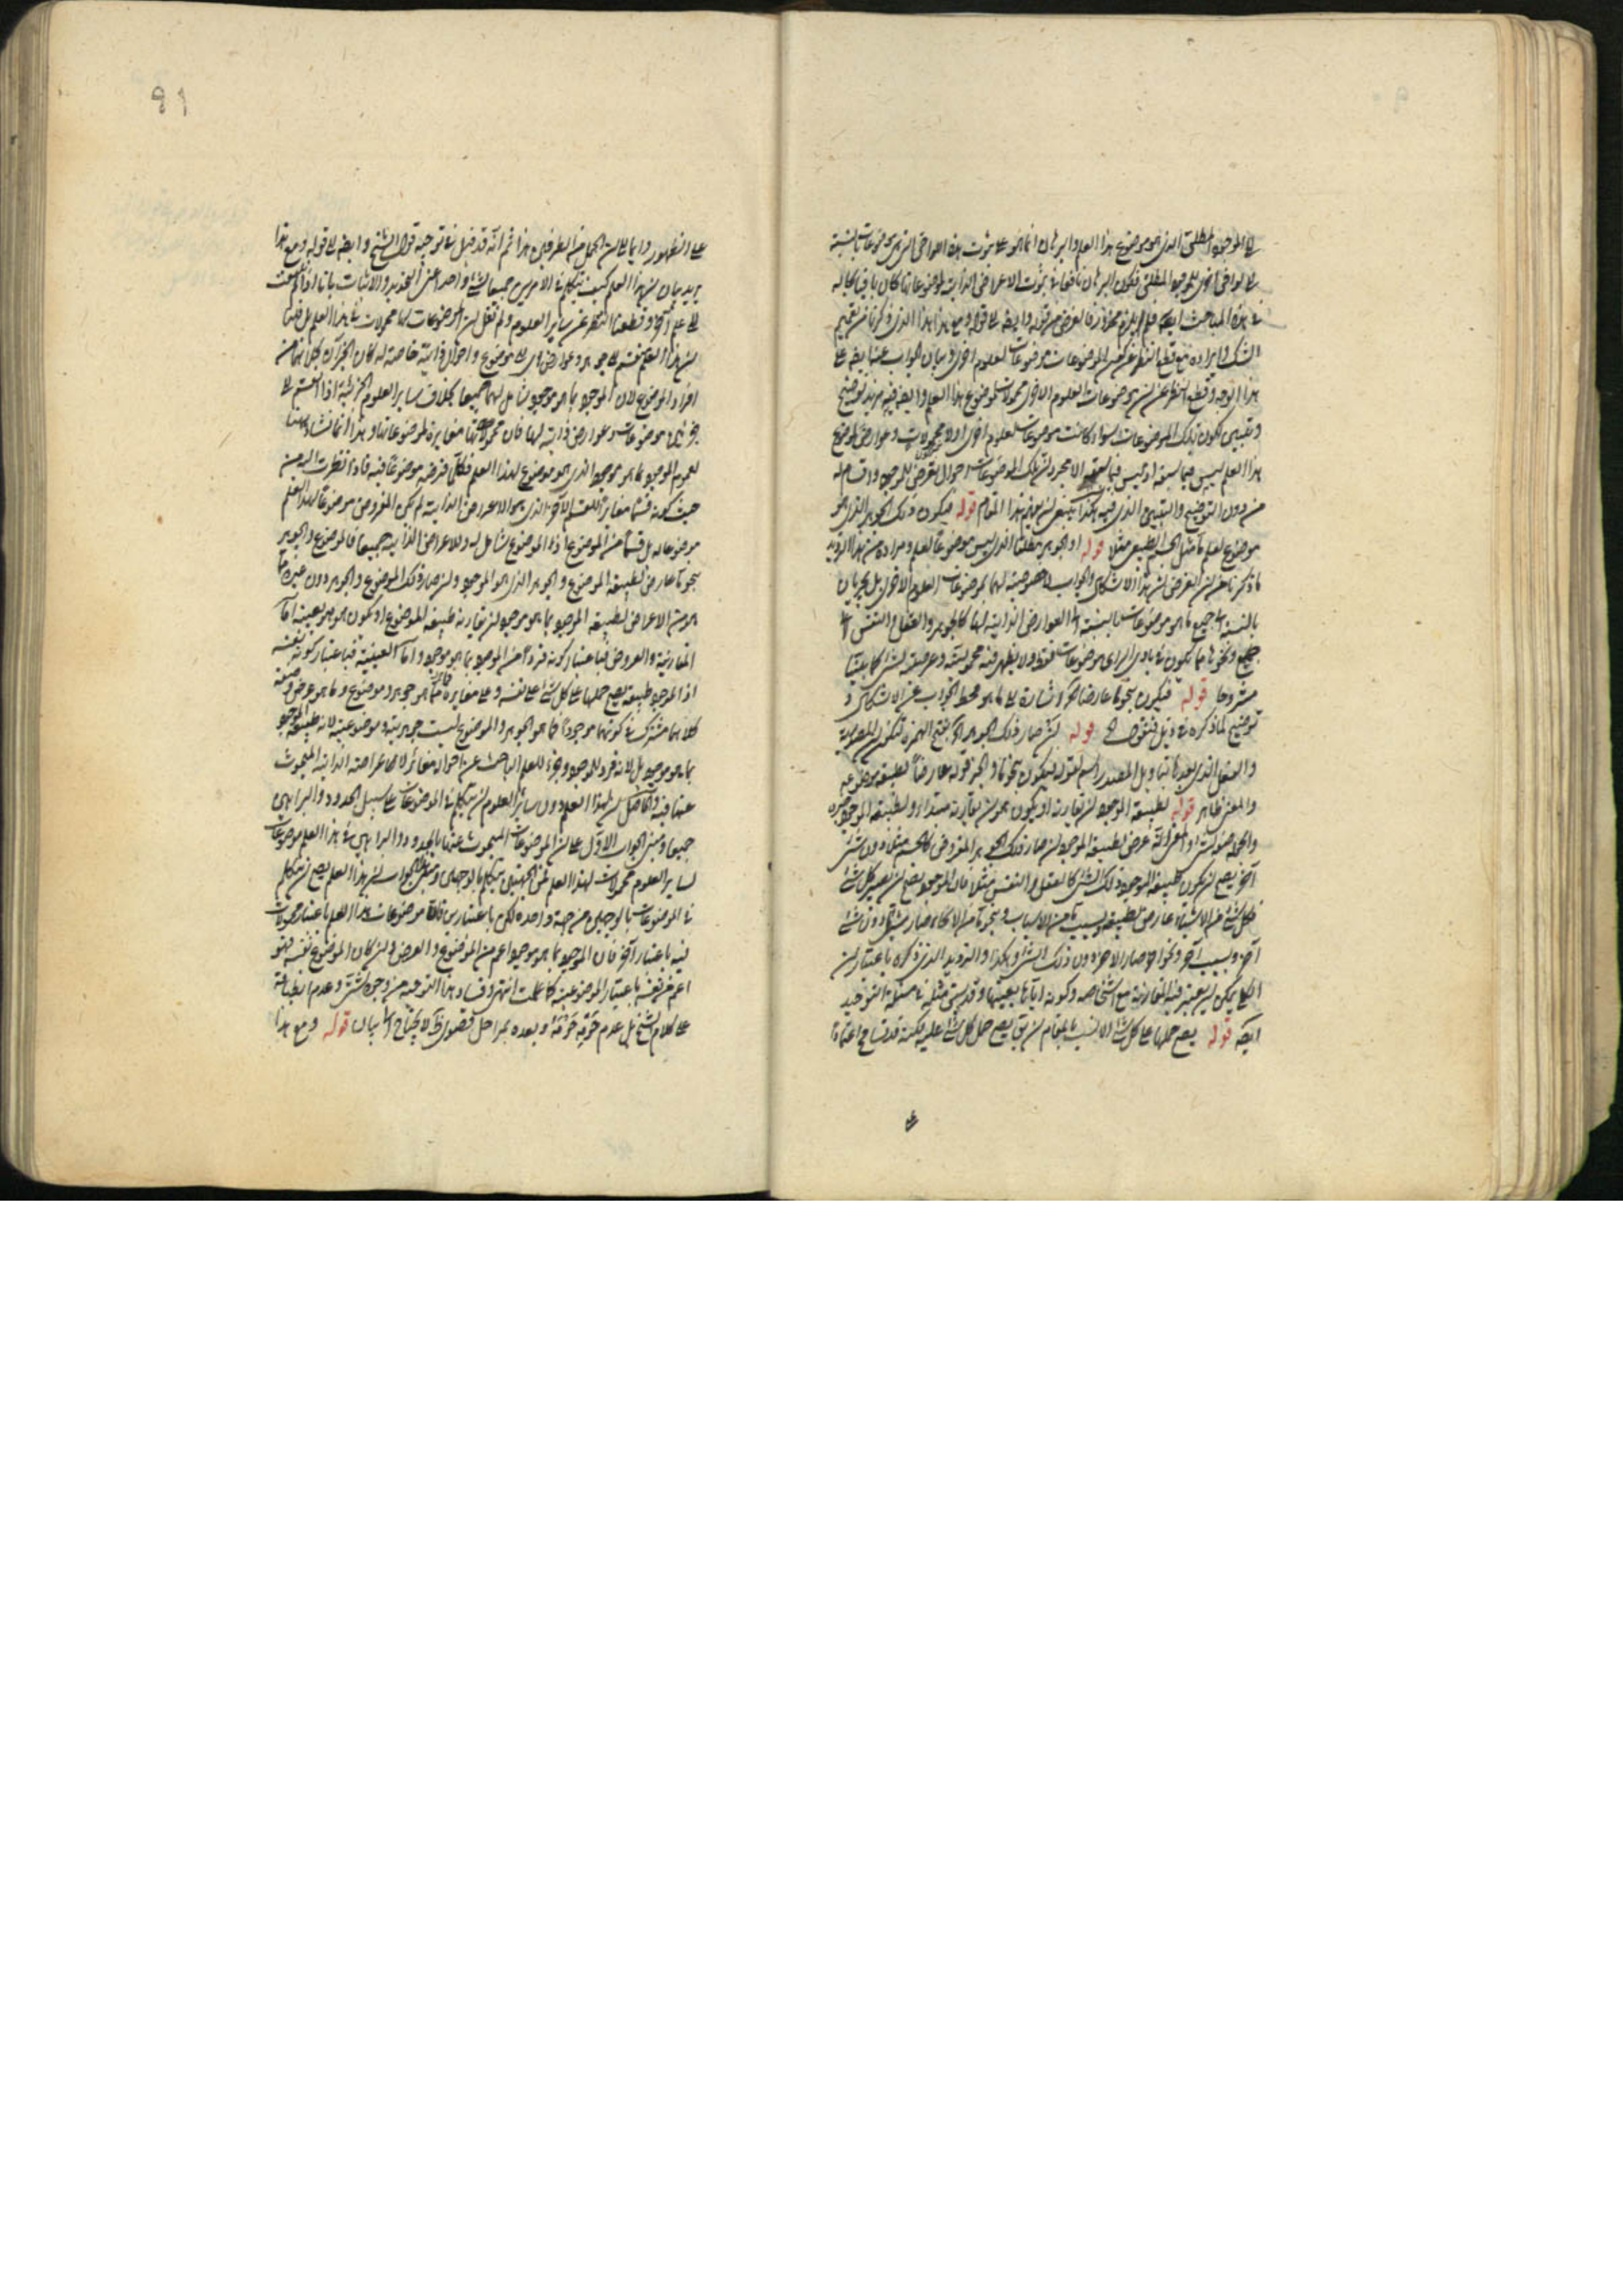 الموجود المطلق الذي هو موضوع هذا العلم والبرهان انما هو على ثبوت هذه العوارض التي هي موضوعات بالنسبة
فيكون البرهان نافعا في ثبوت الاعراض الذاتية لموضوعاتها كان باقيا بحاله
في هذه المباحث ايضا فلم يلزم محذور فالغرض من قوله وايضا الى قوله ومع هذا هذا الذي ذكرنا من تعميم
الشك وايراده مع قطع النظر عن كون الموضوعات موضوعات لعلوم اخرى وبيان الجواب عنها ايضا على
هذا الوجه وقطع النظر عن ان موضوعات العلوم الاخرى محمولات لموضوع هذا العلم وايضا فيه مزيد توضيح
وتبيين لكون تلك الموضوعات سواء كانت موضوعات لعلوم اخرى او لا محمولات وعوارض لموضوع
هذا العلم ليس فيما سبقه اذ ليس فيما سبق الا مجرد ان تلك الموضوعات احوال تعرض للموجود واقسام له
من دون التوضيح والتبيين الذي فيه هكذا ينبغي ان يفهم هذا المقام قوله فيكون ذلك الجوهر الذي هو
موضوع لعلم ما مثل الجسم الطبيعي مثلا قوله او الجوهر مطلقا الذي ليس موضوعا لعلم ومراده من هذا الترديد
ما ذكرنا من ان الغرض ان هذا الاشكال والجواب لا خصوصية لهما بموضوعات العلوم الاخرى بل يجريان
بالنسبة الى جميع ما هو موضوعات بالنسبة الى العوارض الذاتية لها كالجوهر والعقل والنفس
ونحوها مما يكون في بادي الراي موضوعات فقط ولا يظهر فيه محمولية وعرضية لشيء كما بينا
مشروحا قوله فيكون نحوا ما عارضا اشارة الى ما هو محط الجواب عن الاشكال و
توضيح لما ذكره في ذيل فنقول قوله ان صار ذلك الجوهر بفتح الهمزة لتكون المصدرية
والفعل الذي بعدها بتاويل المصدر اسم لقوله فيكون نحوا ما والخبر قوله عارضا لطبيعة موضوعه
والمعنى ظاهر قوله لطبيعة الموجود ان تقارنه او يكون هو ان تقارنه مبتدا ولطبيعة الموجود خبره
عرض لطبيعة الموجود ان صار ذلك الجوهر المفروض كالجسم مثلا دون شيء
آخر يصح ان يكون طبيعة الموجود ذلك الشيء كالعقل والنفس مثلا فان الموجود يصح ان يصير كل شيء
فكل شيء من الاشياء عارض لطبيعته بسبب ما من الاسباب وبنحو ما من الانحاء فصار شيئا دون شيء
آخر وبسبب آخر ونحو آخر صار الآخر دون ذلك الشيء وهكذا والترديد الذي ذكره باعتبار ان
وكونه اياها بعينها وقد سبق مثله في مسئلة التوحيد
ايضا قوله يصح حملها على كل شيء الانسب بالمقام ان يق يصح حمل كل شيء عليه لكنه قد تسامح اعتمادا
على
91
على الظهور وايماء الى ان الحمل من الطرفين هذا ثم انه قد قيل في توجيه قول الشيخ وايضا الى قوله ومع هذا
يريد بيان ان هذا العلم كيف يتكلم في الامرين جميعا لشيء واحد اعني التحديد والاثبات
الى علم آخر وقطعنا النظر عن ساير العلوم ولم نقل ان الموضوعات لها محمولات في هذا العلم بل قلنا
ان هذا العلم ينقسم الى جوهر وعوارض اي الى موضوع واحوال ذاتية خاصة له كان الجزآن كلاهما من
افراد الموضوع لان الموجود بما هو موجود شامل لهما جميعا بخلاف ساير العلوم الجزئية اذا انقسم الى
جزئين موضوعات وعوارض ذاتية لها فان محمولاتها مغايرة لموضوعاتها وهذا انما نشأ
لعموم الموجود بما هو موجود الذي هو موضوع لهذا العلم فكلما فرضته موضوعا فيه فاذا نظرت اليه من
حيث كونه قسما مغايرا للقسم الآخر الذي هو الاعراض الذاتية لم يكن المفروض موضوعا لهذا العلم
موضوعا له بل قسما من الموضوع اذ الموضوع شامل له وللاعراض الذاتية جميعا فالموضوع والجوهر
نحو ما عارض لطبيعة الموضوع والجوهر الذي هو الموجود وان صار ذلك الموضوع والجوهر دون غيره مما
هو من الاعراض لطبيعة الموجود بما هو موجود ان تقارنه طبيعة الموضوع او يكون هو هو بعينه اما
المقارنة والعروض فباعتبار كونه فردا من الموجود بما هو موجود واما العينية فباعتبار كونه نفسه
اذ الموجود طبيعة يصح حملها على كل شيء على نفسه وعلى مغايره فما هو جوهر وموضوع وما هو عرض وصفة
كلاهما مشترك في كونهما موجودا فما هو الجوهر والموضوع ليست جوهريته وموضوعيته لانه طبيعة الموجود
بما هو موجود بل لانه فرد للموجود وجزء للعلم الباحث عن احواله مغائر لاعراضه الذاتية المبحوث
عنها فيه والحاصل ان لهذا العلم دون سائر العلوم ان يتكلم في الموضوعات على سبيل الحدود والبراهين
جميعا ومبنى الجواب الاول على ان الموضوعات المبحوث عنها بالحدود والبراهين في هذا العلم موضوعات
لساير العلوم محمولات لهذا العلم فمن الجهتين يتكلم بالوجهين ومبنى هذا الجواب ان هذا العلم يصح ان يتكلم
في الموضوعات بالوجهين من جهة واحدة لكن باعتبارين فانها موضوعات لهذا العلم باعتبار محمولات
فيه باعتبار آخر فان الموجود بما هو موجود اعم من الموضوع والعرض وان كان الموضوع نفسه فهو
اعم من نفسه باعتبار الموضوعية كما علمت انتهى وفساد هذا التوجيه من وجوه شتى وعدم انطباقه
على كلام الشيخ بل عدم وبعده بمراحل لا يحتاج الى بيان قوله ومع هذا